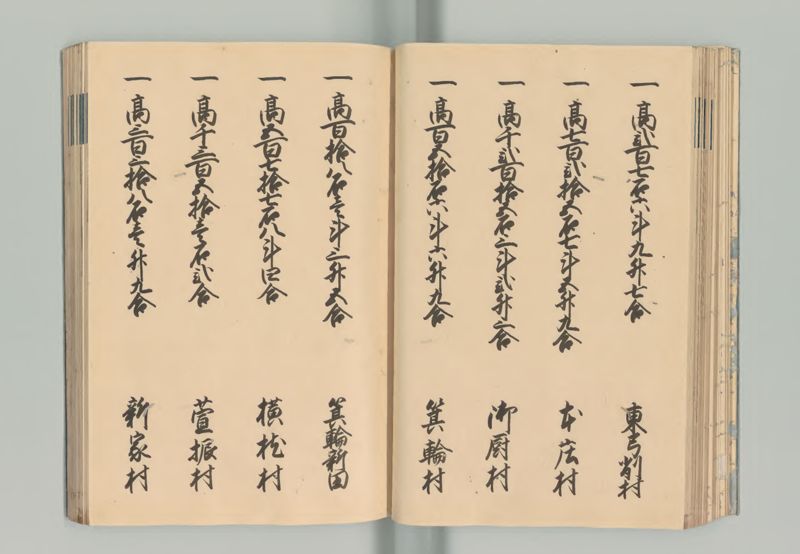 一高弐百七石六斗九升七合 東弓削村
一高七百弐拾五石七斗五升九合 本庄村
一高千弐百拾五石三斗弐升三合 御厨村
一高百五拾石六斗六升九合 箕輪村
一高百拾八石壱斗三升五合 箕輪新田
一高五百七拾七石八斗四合 横枕村
一高千三百五拾壱石弐合 萱振村
一高三百三拾八石壱升九合 新家村